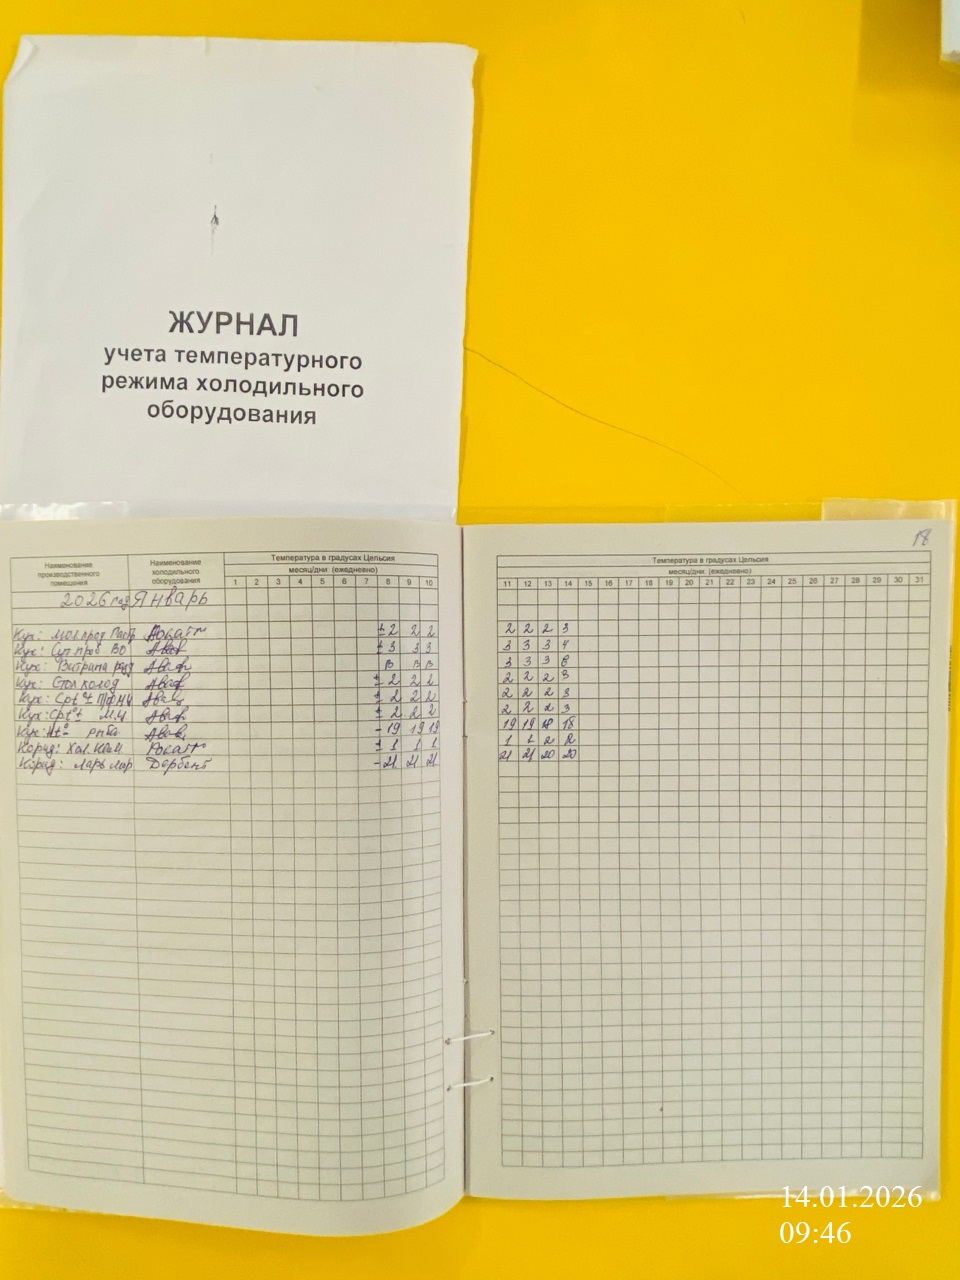 ЖУРНАЛ
учета температурного
режима холодильного
оборудования
18
Наименование производственного помещения
Наименование холодильного оборудования
Температура в градусах Цельсия
месяц/дни: (ежедневно)
1 2 3 4 5 6 7 8 9 10
Температура в градусах Цельсия
месяц/дни: (ежедневно)
11 12 13 14 15 16 17 18 19 20 21 22 23 24 25 26 27 28 29 30 31
2026 год Январь
Кух: мол.прод ± 2 2 2 2 2 2 3
Кух: Суп.проб ВО ± 3 3 3 3 3 3 4
Кух: Витрина 3 3 3
Кух: Стол холод ± 2 2 2 2 2 2 3
Кух: ± 2 2 2 2 2 2 3
Кух: ± 2 2 2 2 2 2 3
Кух: - 19 19 19 19 19 18 18
Корид: Хол. Кам ± 1 1 1 1 1 2 2
Корид: Ларь Дербент - 21 21 21 21 21 20 20
14.01.2026
09:46